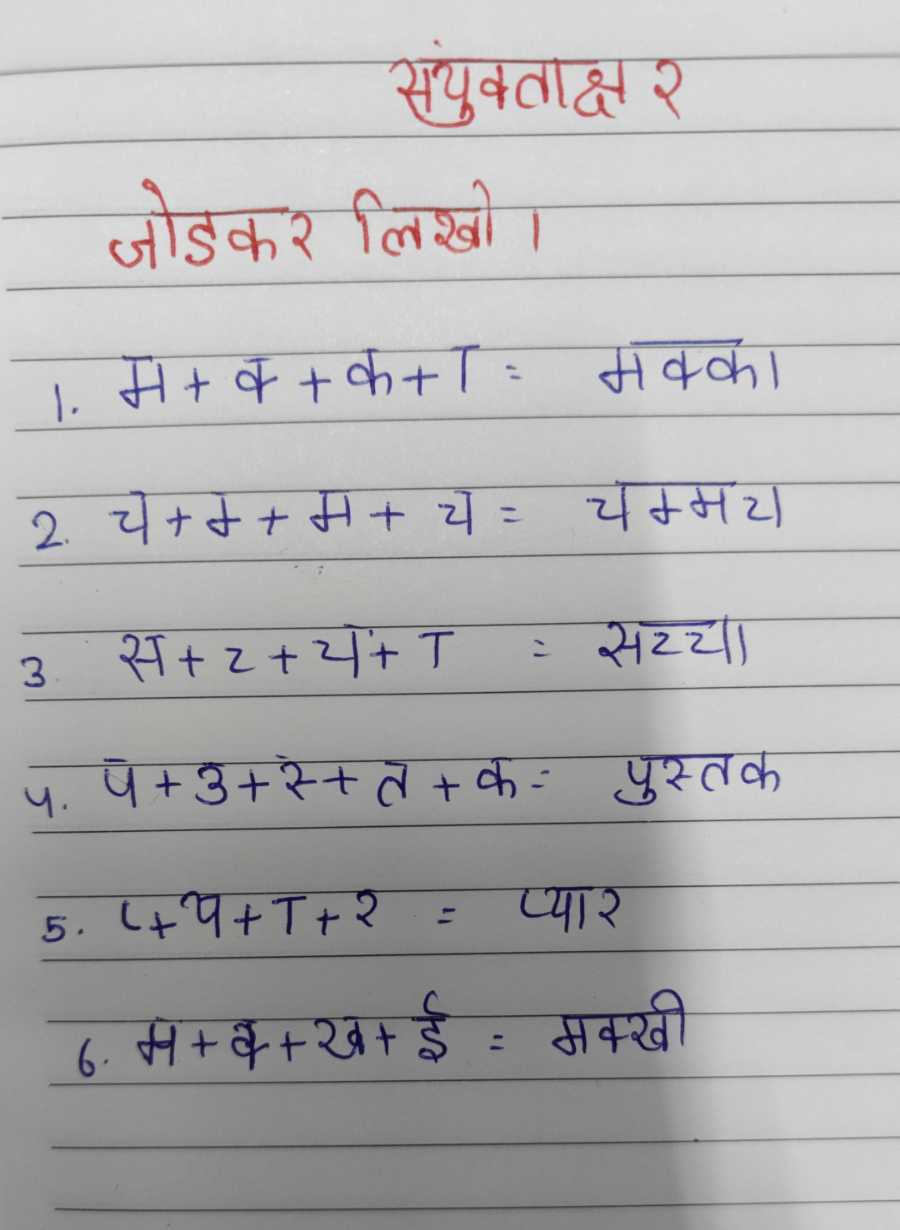 संयुक्ताक्षर
जोडकर लिखो।
1. म + क् + क + ा = मक्का
2. च + म् + म + च = चम्मच
3. स + च् + च + ा = सच्चा
५. प + उ + स् + त + क = पुस्तक
5. प् + य + ा + र = प्यार
6. म + क् + ख + ई = मक्खी